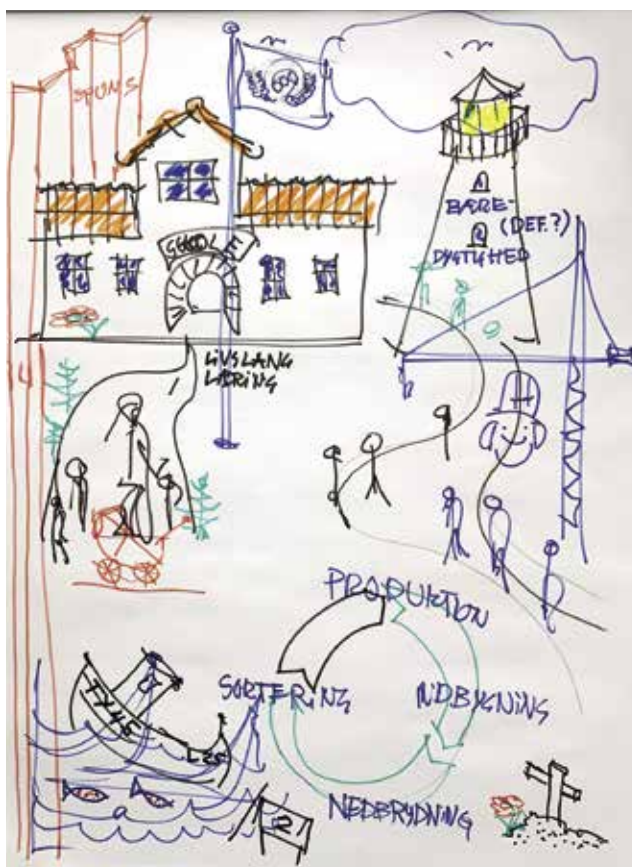 SKOLE
BÆRE-
(DEF.?)
DYGTIGHED
LIVSLANG
LÆRING
PRODUKTION
SORTERING
INDBYGNING
NEDBRYDNING